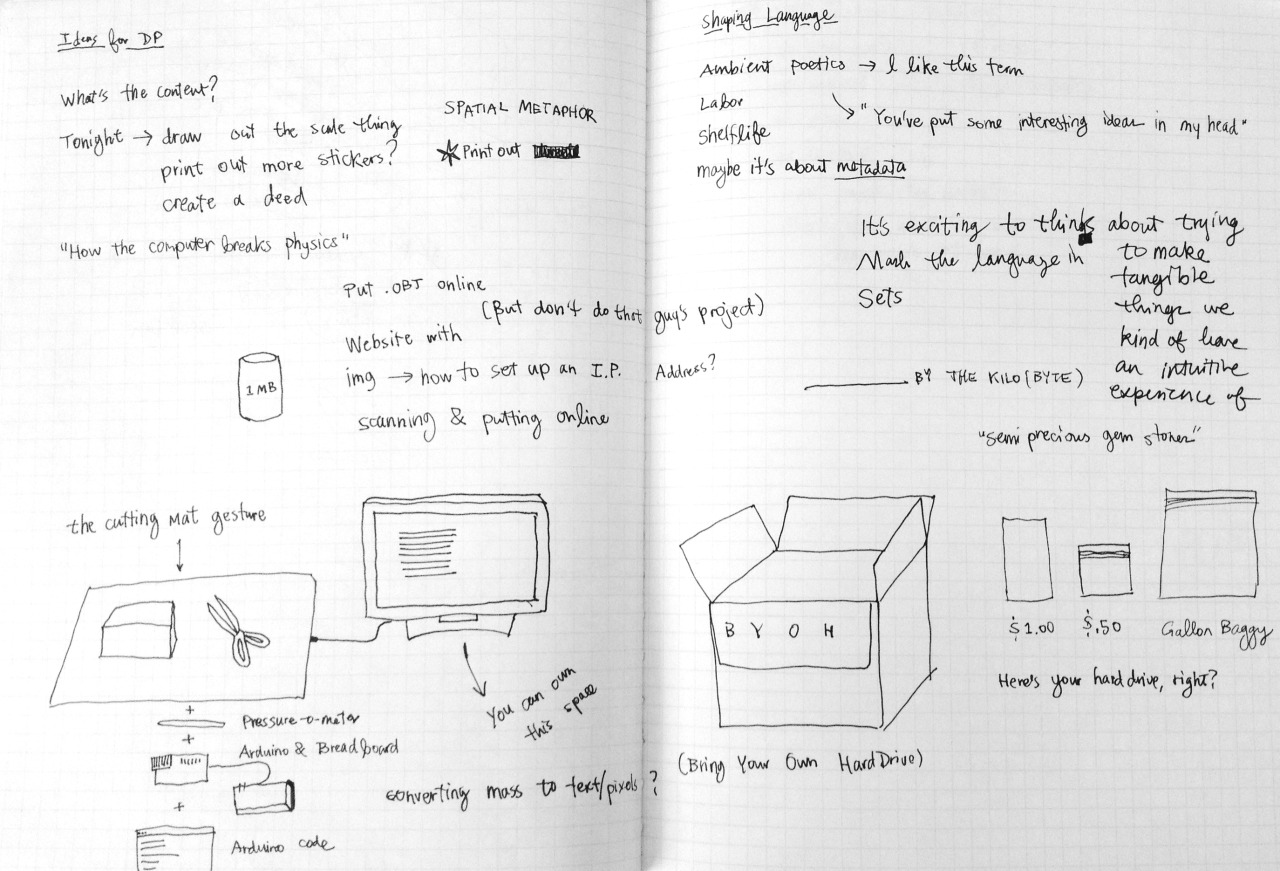 Ideas for DP
What's the content?
Tonight → draw out the scale thing
print out more stickers?
create a deed
SPATIAL METAPHOR
★ Print out
"How the computer breaks physics"
Put .OBJ online
(But don't do that guy's project)
Website with
img → how to set up an I.P. Address?
scanning & putting online
1 MB
the cutting mat gesture
You can own
this space
+
Pressure-o-meter
+
Arduino & Breadboard
+
Arduino code
converting mass to text/pixels?
Shaping Language
Ambient poetics → I like this term
Labor
"You've put some interesting ideas in my head"
Shelflife
maybe it's about metadata
It's exciting to think about trying
to make
tangible
things we
kind of have
an intuitive
experience of
Mark the language in
Sets
BY THE KILO(BYTE)
"semi precious gem stones"
B Y O H
(Bring Your Own HardDrive)
$1.00
$.50
Gallon Baggy
Here's your hard drive, right?